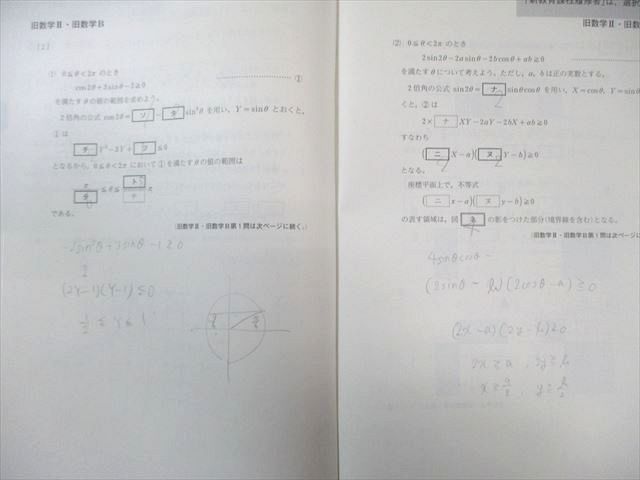 旧数学Ⅱ・旧数学B
〔2〕
① 0≦θ<2π のとき
cos2θ+3sinθ-2≧0 ①
を満たす θ の値の範囲を求めよう。
2倍角の公式 cos2θ= ソ - タ sin²θ を用い、Y=sinθ とおくと、
①は
チ Y²-3Y+ ツ ≦0
となるから、0≦θ<2π において①を満たす θ の値の範囲は
π ≦θ≦ ト π
テ ナ
である。
(旧数学Ⅱ・旧数学B第1問は次ページに続く。)
-2sin²θ+3sinθ-1≧0
(2Y-1)(Y-1)≦0
1/2 ≦ Y ≦ 1
「新教育課程履修者」は、選択
旧数学Ⅱ・旧数
② 0≦θ<2π のとき
2sin2θ-2a sinθ-2b cosθ+ab≧0
を満たす θ について考えよう。ただし、a, b は正の実数とする。
2倍角の公式 sin2θ= ナ sinθcosθ を用い、X=cosθ, Y=sinθ
くと、②は
2× ナ XY-2aY-2bX+ab≧0
すなわち
( ニ X-a)( ヌ Y-b)≧0
となる。
座標平面上で、不等式
( ニ x-a)( ヌ y-b)≧0
の表す領域は、図 ネ の影をつけた部分(境界線を含む)となる。
(旧数学Ⅱ・旧数学B第1問は次ページに
4sinθcosθ -
(2sinθ-b)(2cosθ-a)≧0
(2x-a)(2y-b)≧0
2x≧a, 2y≧b
x≧a/2, y≧b/2